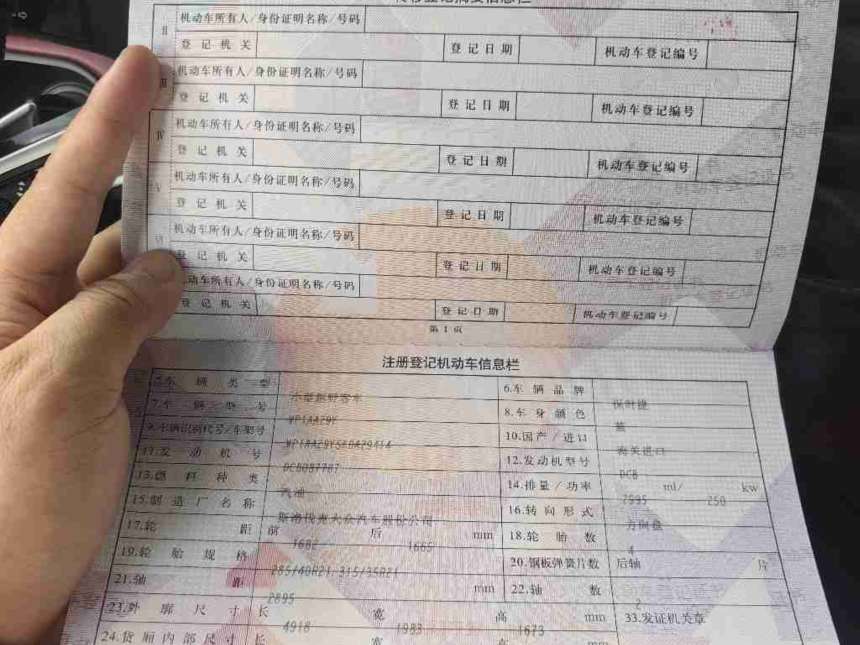 转移登记摘要信息栏
II 机动车所有人/身份证明名称/号码
登记机关 登记日期 机动车登记编号
III 机动车所有人/身份证明名称/号码
登记机关 登记日期 机动车登记编号
IV 机动车所有人/身份证明名称/号码
登记机关 登记日期 机动车登记编号
V 机动车所有人/身份证明名称/号码
登记机关 登记日期 机动车登记编号
VI 机动车所有人/身份证明名称/号码
登记机关 登记日期 机动车登记编号
机动车所有人/身份证明名称/号码
登记机关 登记日期 机动车登记编号
第1页
注册登记机动车信息栏
5.车辆类型 小型越野客车 6.车辆品牌 保时捷
7.车辆型号 WP1AA29Y 8.车身颜色 蓝
9.车辆识别代号/车架号 10.国产/进口 海关进口
11.发动机号 12.发动机型号 DCB
13.燃料种类 汽油 14.排量/功率 2995 ml/ 250 kw
15.制造厂名称 斯洛伐克大众汽车股份公司 16.转向形式 方向盘
17.轮距 前 1682 后 1665 mm 18.轮胎数 4
19.轮胎规格 285/40R21 315/35R21 20.钢板弹簧片数 后轴 片
21.轴距 2895 mm 22.轴数 2
23.外廓尺寸 长 4918 宽 1983 高 1673 mm 33.发证机关章
24.货厢内部尺寸 长 宽 高 mm